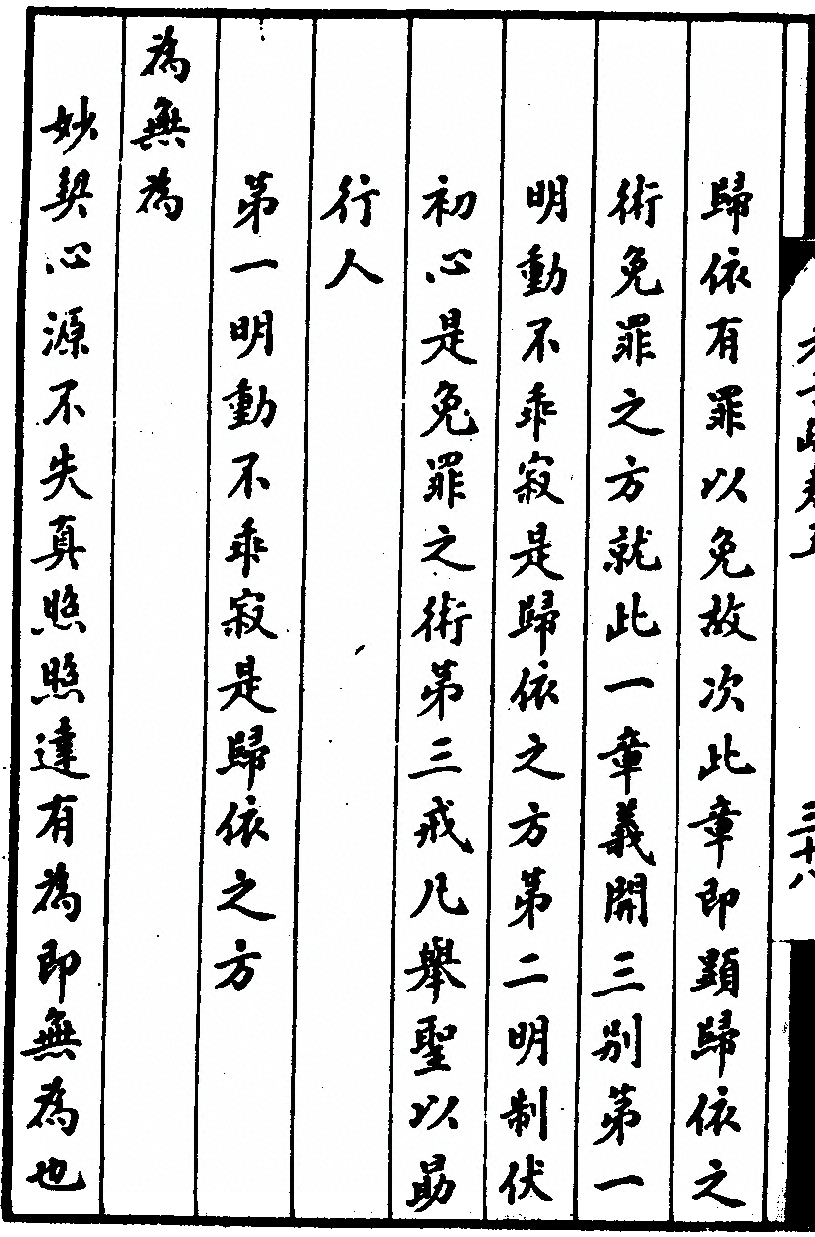 歸依有罪以免故次此章即顯歸依之
術免罪之方就此一章義開三別第一
明動不乖寂是歸依之方第二明制伏
初心是免罪之術第三戒凡舉聖以勗
行人
第一明動不乖寂是歸依之方
為無為
妙契心源不失真照照達有為即無為也
三十八